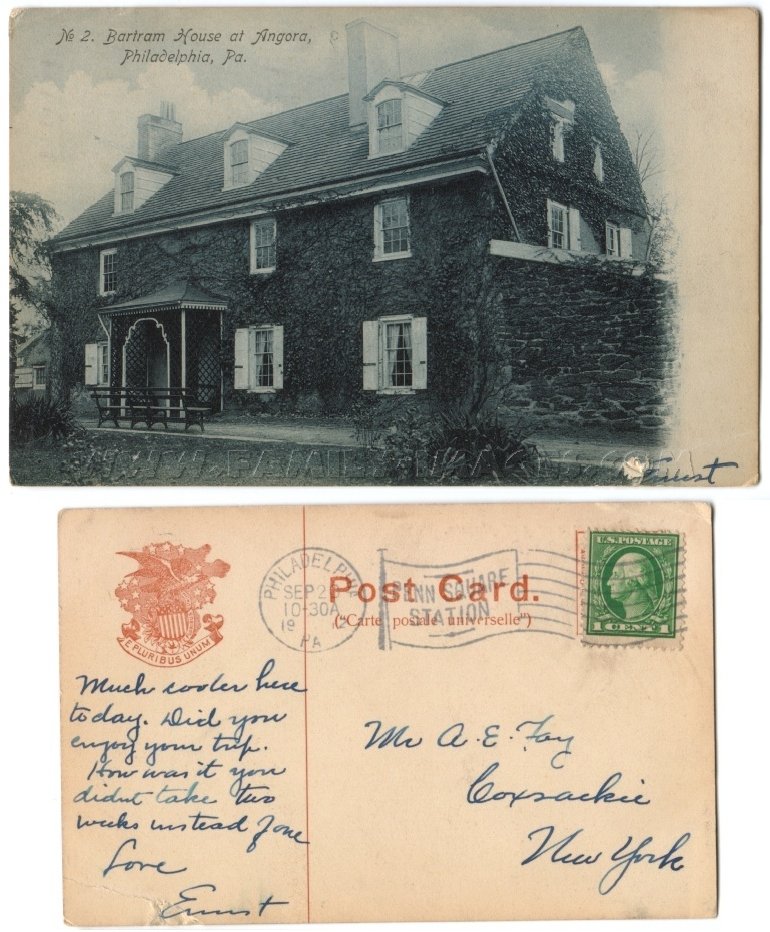 № 2. Bartram House at Angora,
Philadelphia, Pa.
Ernst
E PLURIBUS UNUM
PHILADELPHIA
SEP 2
10-30A
19 12
PA
PENN SQUARE
STATION
Post Card.
("Carte postale universelle")
U.S. POSTAGE
1 CENT 1
Much cooler here
today. Did you
enjoy your trip.
How was it you
didnt take two
weeks instead of one
Love
Ernst
Mr A. E. Fay
Coxsackie
New York